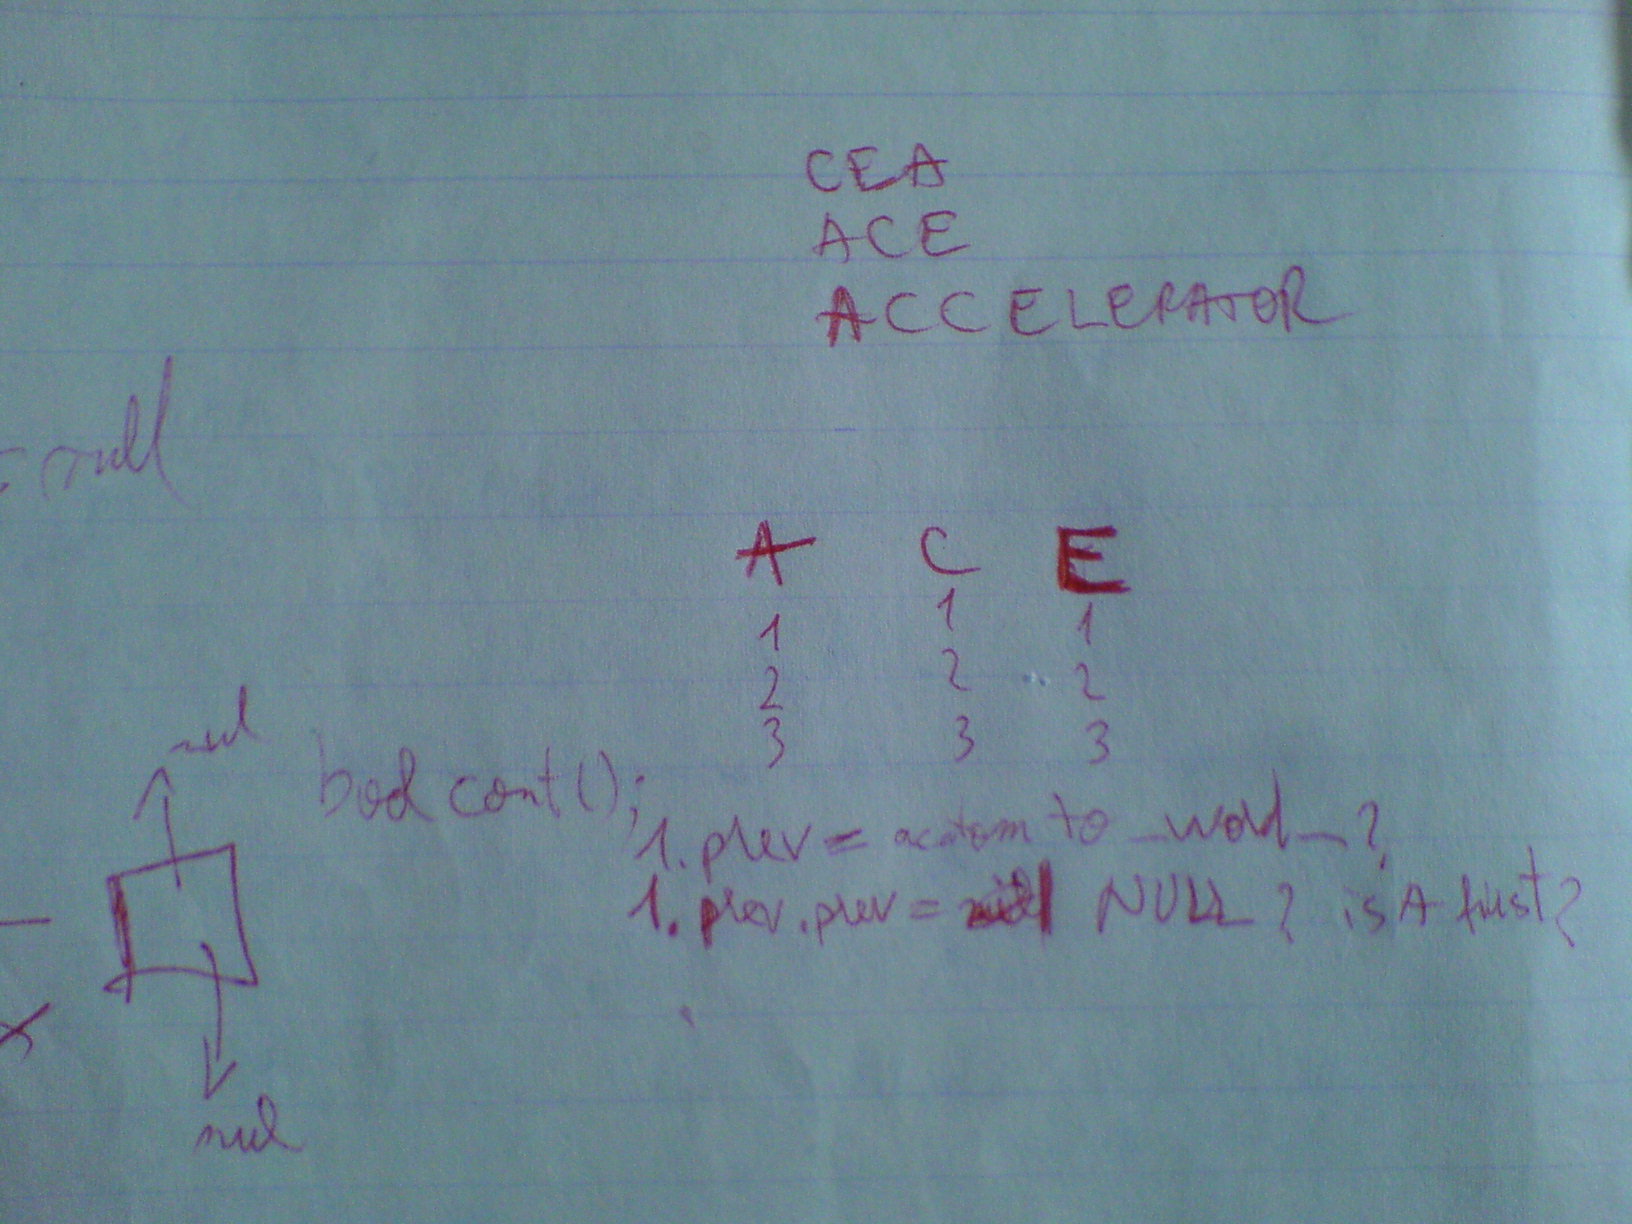 CEA
ACE
ACCELERATOR
= null
A C E
1 1 1
2 2 2
3 3 3
null
bool cont();
1. prev = to _word_?
1. prev.prev = null NULL? is A first?
null